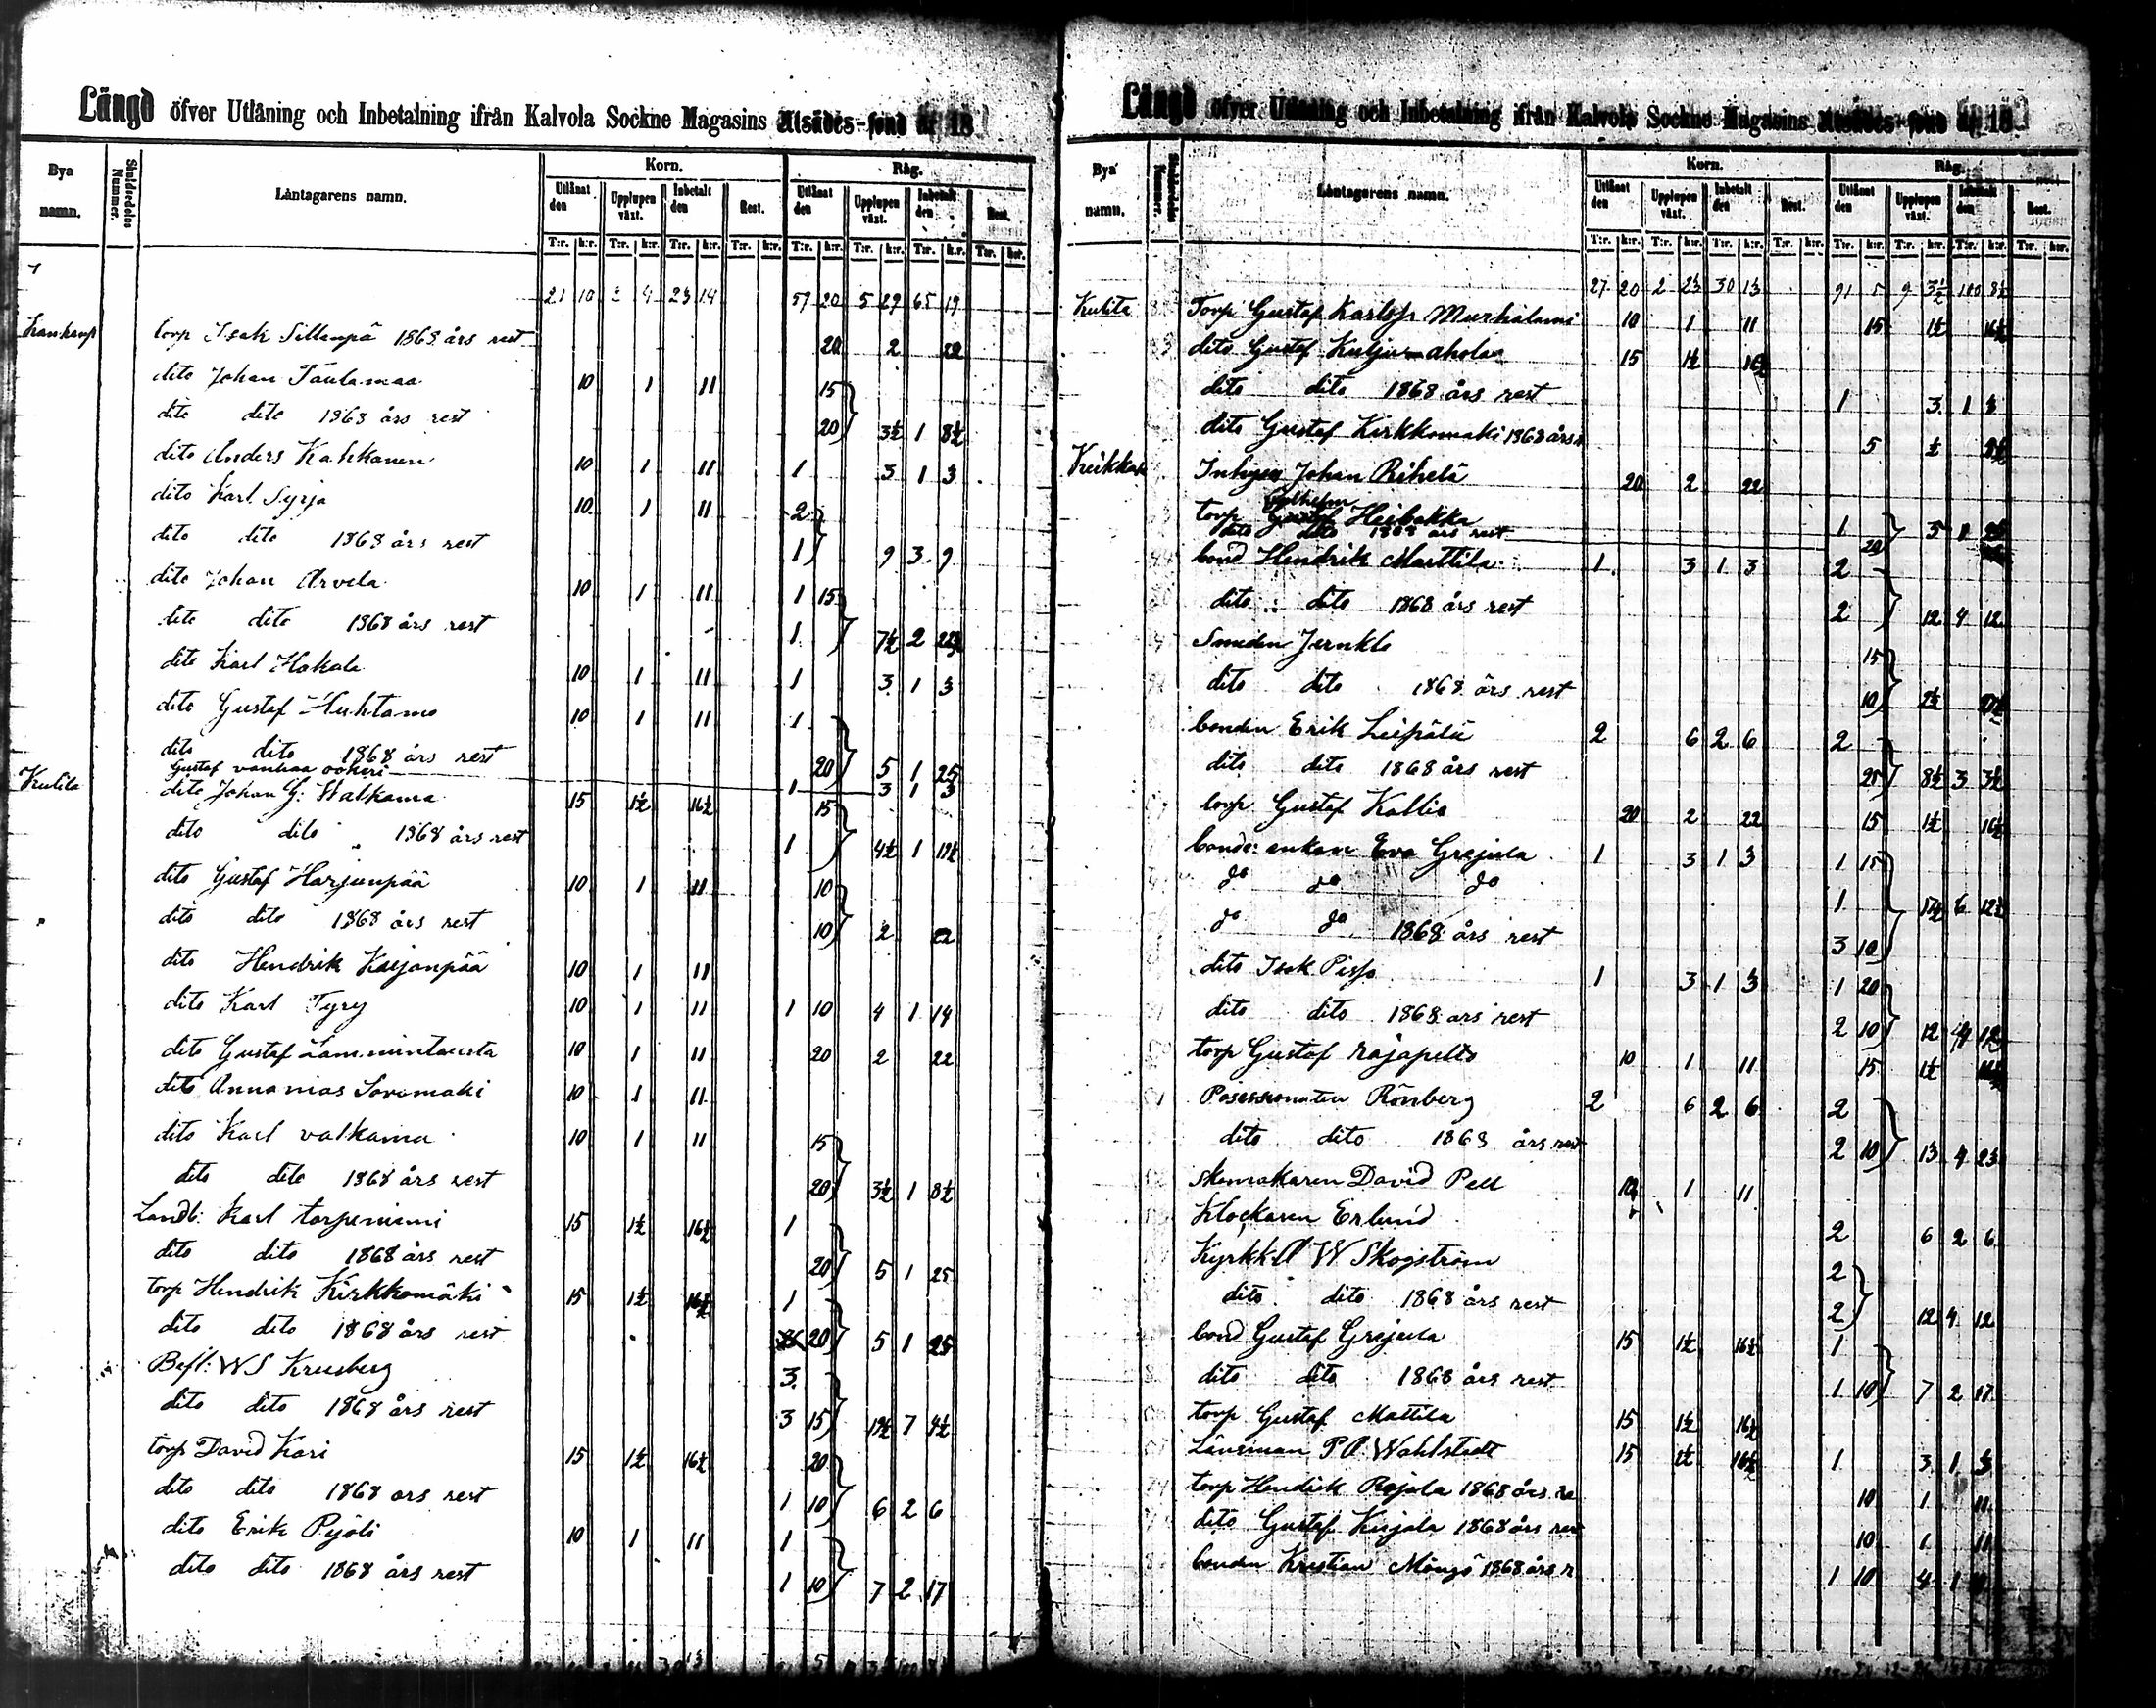 Längd öfver Utlåning och Inbetalning ifrån Kalvola Sockne Magasins Utsädes-fond år 18
Bya namn. Skuldsedelns Nummer. Låntagarens namn. Korn. Råg.
Utlånat den Upplupen växt. Inbetalt den Rest. Utlånat den Upplupen växt. Inbetalt den Rest.
T:r. k:r. T:r. k:r. T:r. k:r. T:r. k:r. T:r. k:r. T:r. k:r. T:r. k:r. T:r. k:r.
21 10 2 4 23 14 59 20 5 29 65 19
torp Isak Sillanpä 1868 års rest 20 2 22
dito Johan Taulamaa 10 1 11 15
dito dito 1868 års rest 20 3½ 1 8½
dito Anders Kahkonen 10 1 11 1 3 1 3
dito Karl Syrja 10 1 11 2
dito dito 1868 års rest 1 9 3 9
dito Johan Arvela 10 1 11 1 15
dito dito 1868 års rest 1 7½ 2 22½
dito Karl Hakala 10 1 11 1 3 1 3
dito Gustaf Huhtamo 10 1 11 1
dito dito 1868 års rest 20 5 1 25
Gustaf vanhaa ookeri 1 3 1 3
Kulila dito Johan G: Walkama 15 1½ 16½ 15
dito dito 1868 års rest 1 4½ 1 19½
dito Gustaf Harjunpää 10 1 11 10
dito dito 1868 års rest 10 2 22
dito Hendrik Karjanpää 10 1 11
dito Karl Tyry 10 1 11 1 10 4 1 14
dito Gustaf Lammintausta 10 1 11 20 2 22
dito Annanias Soromaki 10 1 11
dito Karl valkama 10 1 11 15
dito dito 1868 års rest 20 3½ 1 8½
Landb: Karl torpeniemi 15 1½ 16½ 1
dito dito 1868 års rest 20 5 1 25
torp Hendrik Kirkkomäki 15 1½ 16½ 1
dito dito 1868 års rest 20 5 1 25
Befl: W S Krusberg 3
dito dito 1868 års rest 3 15 19½ 7 4½
torp David Kari 15 1½ 16½ 20
dito dito 1868 ars rest 1 10 6 2 6
dito Erik Pyöli 10 1 11 1
dito dito 1868 års rest 1 10 7 2 17
Längd öfver Utlåning och Inbetalning ifrån Kalvola Sockne Magasins Utsädes-fond år 18
Bya namn. Skuldsedelns Nummer. Låntagarens namn. Korn. Råg.
Utlånat den Upplupen växt. Inbetalt den Rest. Utlånat den Upplupen växt. Inbetalt den Rest.
T:r. k:r. T:r. k:r. T:r. k:r. T:r. k:r. T:r. k:r. T:r. k:r. T:r. k:r. T:r. k:r.
27 20 2 23 30 13 91 5 9 3½ 100 8½
Kulila Torp Gustaf Karlsfs Murhalami 10 1 11 15 1½ 16½
dito Gustaf Kulju-ahola 15 1½ 16½
dito dito 1868 års rest 1 3 1 3
dito Gustaf Kirkkomaki 1868 års 5 ½
Inhyses Johan Rihelä 20 2 22
torp Vilhelm Heibakka 1 3 1
dito dito 1868 års rest 20
bond Hendrik Marttila 1 3 1 3 2
dito dito 1868 års rest 2 12 4 12
Smeden Jernklo 15
dito dito 1868 års rest 10 2½ 27½
bonden Erik Leipälä 2 6 2 6 2
dito dito 1868 års rest 25 8½ 3 3½
torp Gustaf Kallio 20 2 22 15 1½ 16½
bonde: enkan Eva Grejula 1 3 1 3 1 15
do do do 1 6 12½
do do 1868 års rest 3 10
dito Isak Piso 1 3 1 3 1 20
dito dito 1868 ars rest 2 10 12 4 12
torp Gustaf Rajapelto 10 1 11 15 1½
Posessionaten Rönberg 2 6 2 6 2
dito dito 1868 års rest 2 10 13 4 23
skomakaren David Pell 10 1 11
Klockaren Erlund 2 6 2 6
Kyrkk W Skogström 2
dito dito 1868 års rest 2 12 4 12
bond Gustaf Grejula 15 1½ 16½ 1
dito dito 1868 års rest 1 10 7 2 17
torp Gustaf Mattila 15 1½ 16½
Länsman P A Wahlstedt 15 1½ 16½ 1 3 1 3
torp Hendrik Rajala 1868 års re 10 1 11
dito Gustaf Kujala 1868 års res 10 1 11
bonden Kristian Mängö 1868 års r 1 10 4 1